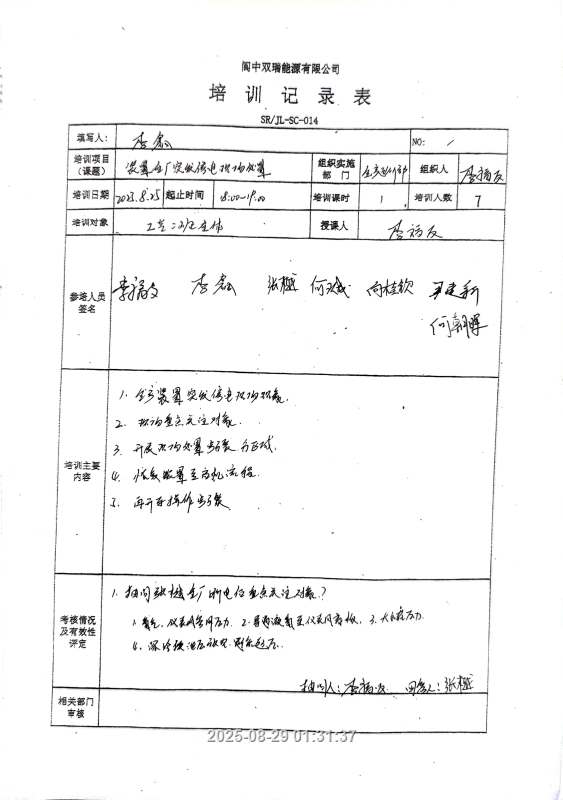 阆中双瑞能源有限公司
培训记录表
SR/JL-SC-014
填写人: 李磊 NO: /
培训项目(课题) 装置全厂突发停电现场处置 组织实施部门 生产运行部 组织人 李福友
培训日期 2025.8.25 起止时间 18:00-19:00 培训课时 1 培训人数 7
培训对象 工艺二班全体 授课人 李福友
参培人员签名 李福友 李磊 张樾 何斌 向桂钦 建新
何朝晖
培训主要内容
1. 生产装置突发停电现场现象.
2. 现场重点关注对象.
3. 开展现场处置步骤分区域.
4. 恢复装置至方机流程.
5. 再开车操作步骤
考核情况及有效性评定
1. 抽问张樾全厂断电后重点关注对象?
1. 蒸汽、仪表风管网压力. 2. 液氮至仪表风 3. 压力.
4. 深冷 压
抽问人: 李福友 回答人: 张樾
相关部门审核
2025-08-29 01:31:37